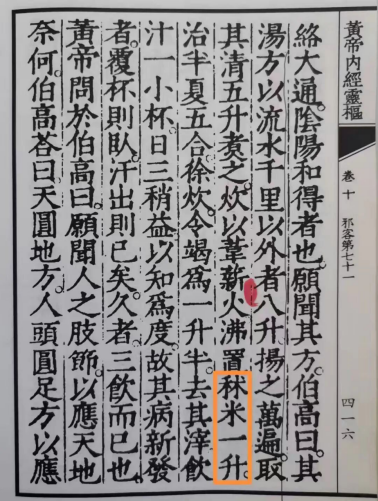 黃帝內經靈樞
卷十
邪客第七十一
四一六
絡大通陰陽和得者也願聞其方伯高曰其
湯方以流水千里以外者八升揚之萬遍取
其清五升煮之炊以葦薪火沸置秫米一升
治半夏五合徐炊令竭爲一升半去其滓飲
汁一小杯日三稍益以知爲度故其病新發
者覆杯則臥汗出則已矣久者三飲而已也
黃帝問於伯高曰願聞人之肢節以應天地
奈何伯高荅曰天圓地方人頭圓足方以應